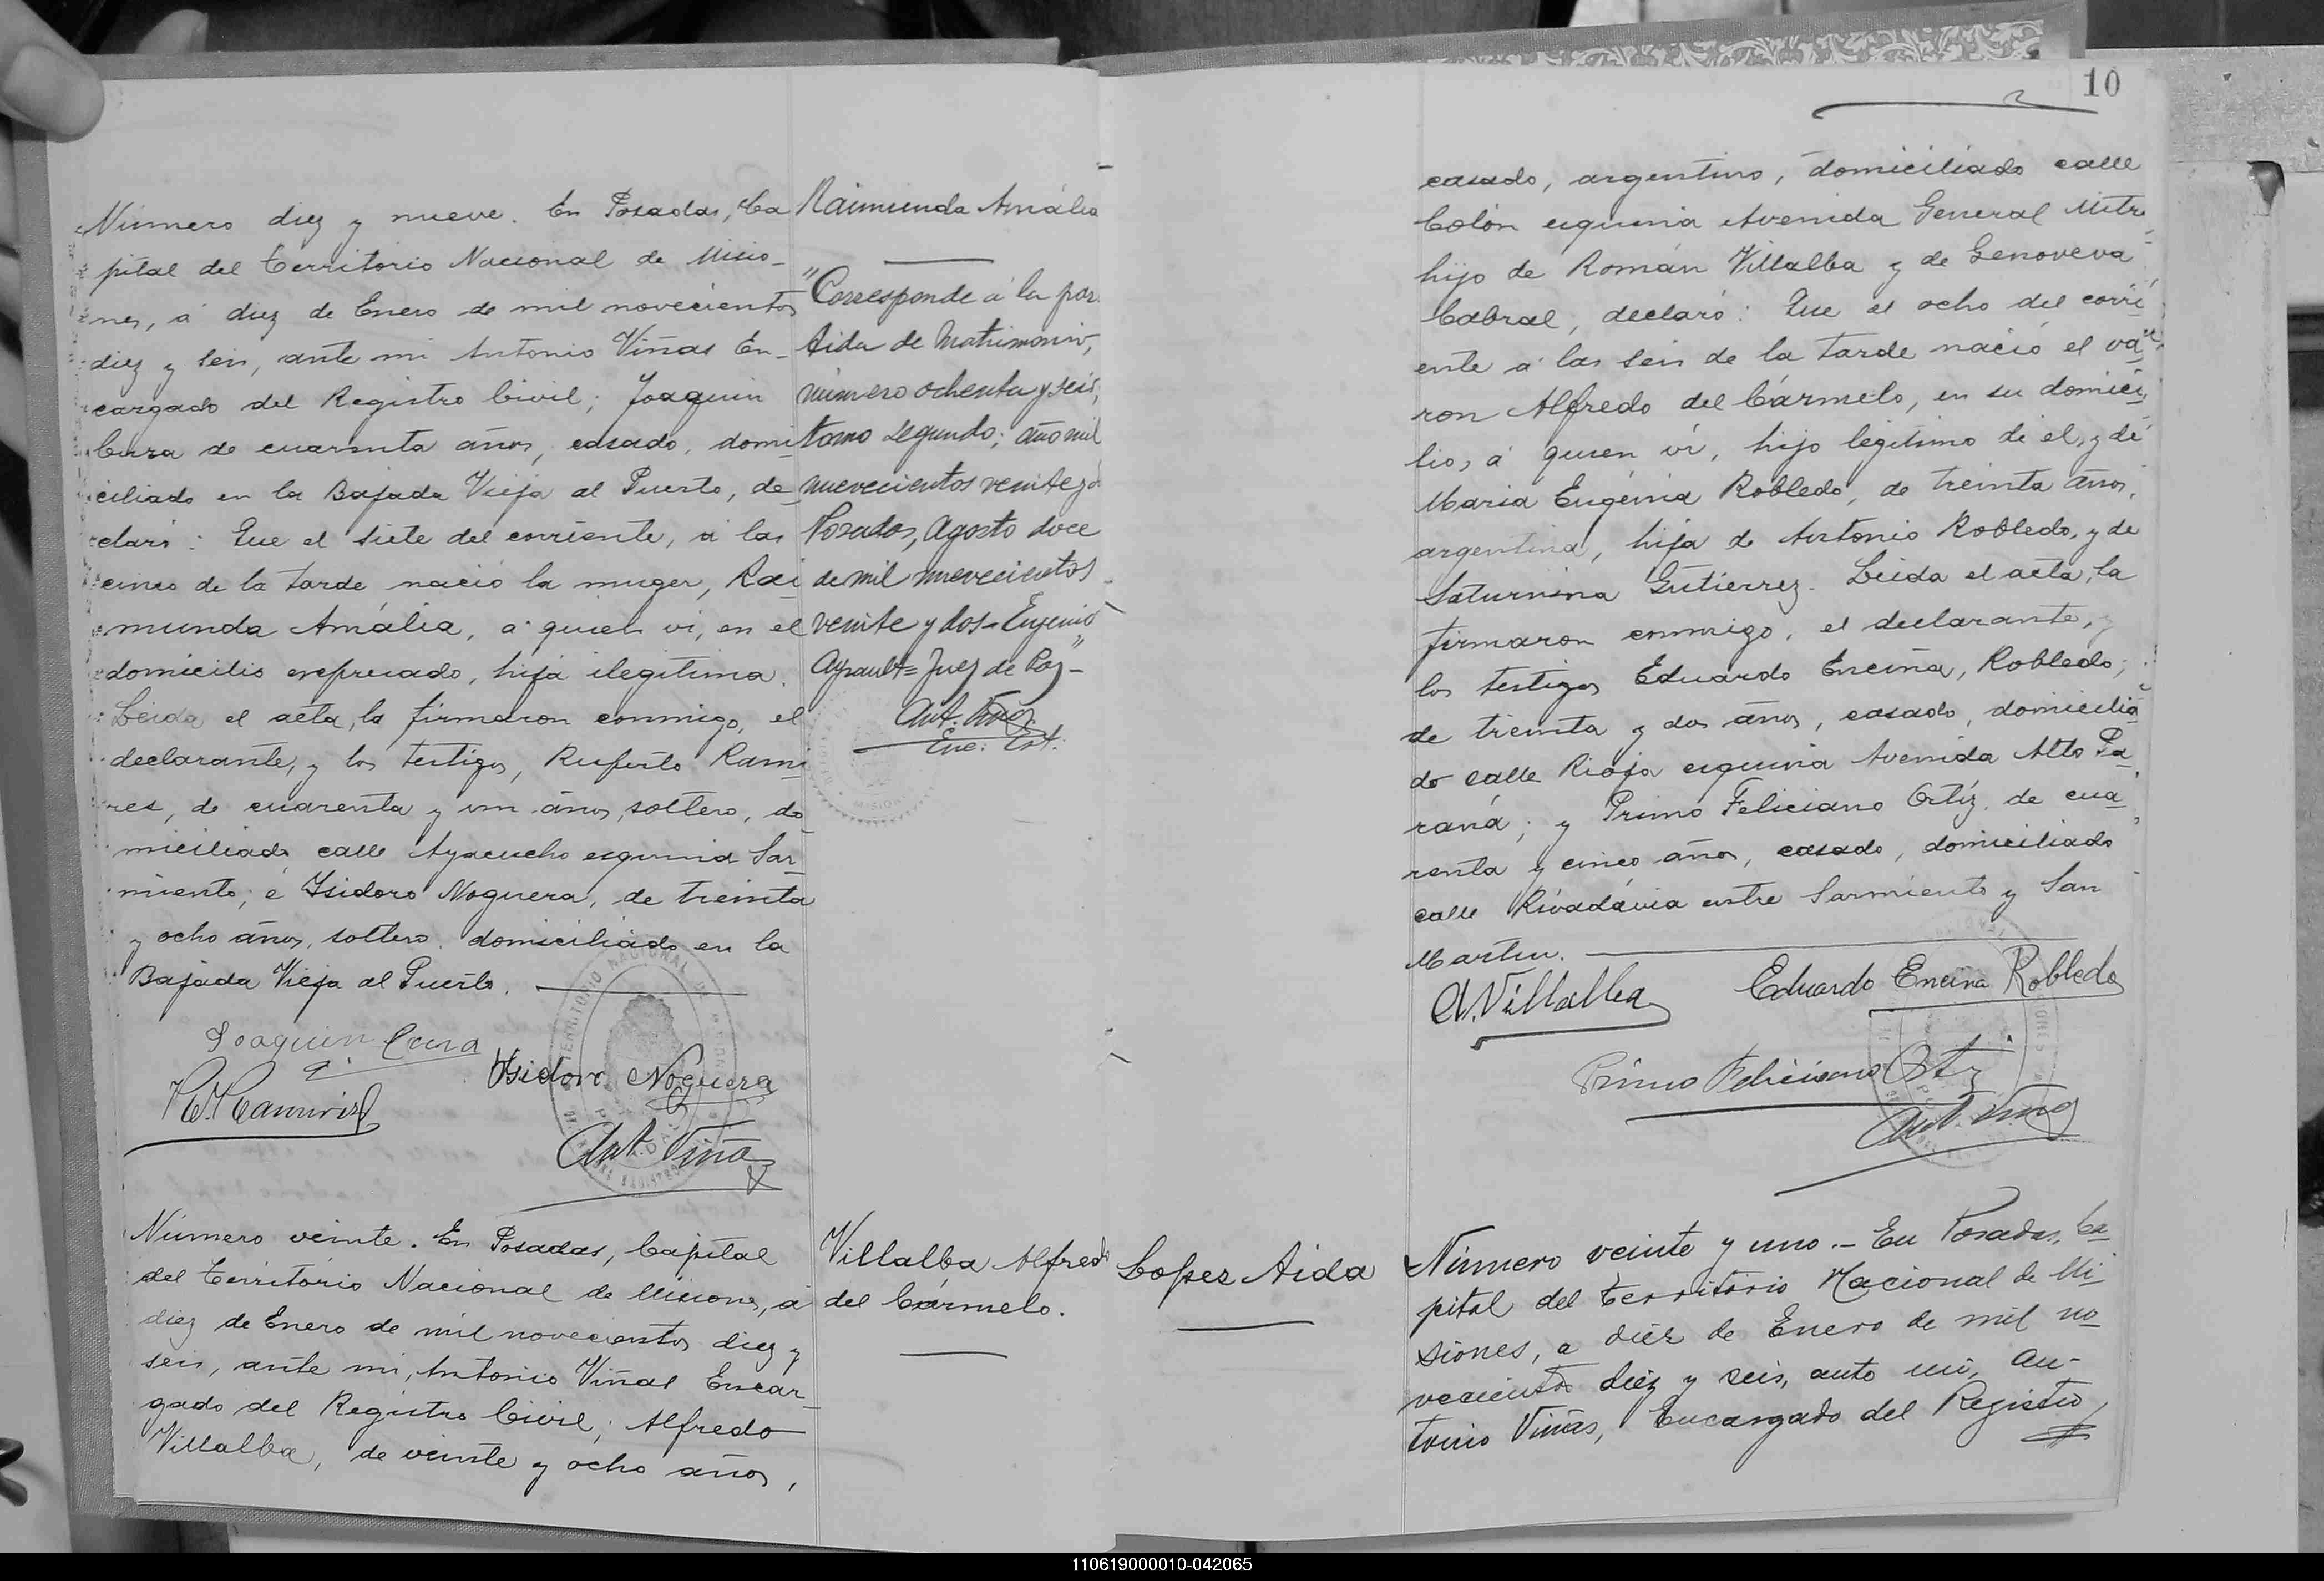 Número diez y nueve. En Posadas, Ca
pital del Territorio Nacional de Misio-
nes, á diez de Enero de mil novecientos
diez y seis, ante mi Antonio Viñas En-
cargado del Registro Civil; Joaquin
Cura de cuarenta años, casado, domi-
ciliado en la Bajada Vieja al Puerto, de-
claró: Que el siete del corriente, á las
cinco de la tarde nació la muger, Rai
munda Amália, á quien vi, en el
domicilio expresado, hija ilegitima.
Leida el acta, la firmaron conmigo, el
declarante, y los testigos, Ruperto Rami
res, de cuarenta y un años, soltero, do-
miciliado calle Ayacucho esquina Sar-
miento; é Isidoro Noguera, de treinta
y ocho años, soltero, domiciliado en la
Bajada Vieja al Puerto.
Joaquin Cura
Isidoro Noguera
Ant. Viñas
Raimunda Amália
"Corresponde á la par
tida de Matrimonio,
número ochenta y seis,
tomo segundo; año mil
nuevecientos veinte y
Posadas, Agosto doce
de mil nuevecientos
veinte y dos - Eugenio
Ayrault = Juez de Paz" -
Ant. Viñas
Enc. Int.
Número veinte. En Posadas, Capital
del Territorio Nacional de Misiones, á
diez de Enero de mil novecientos diez y
seis, ante mi, Antonio Viñas Encar-
gado del Registro Civil; Alfredo
Villalba, de veinte y ocho años,
Villalba Alfredo
del Cármelo.
10
casado, argentino, domiciliado calle
Colón esquina Avenida General Mitre
hijo de Román Villalba y de Genoveva
Cabral, declaró: Que el ocho del corri
ente á las seis de la tarde nació el va
ron Alfredo del Cármelo, en su domici
lio, á quien ví, hijo legitimo de el, y de
Maria Eugénia Robledo, de treinta años,
argentina, hija de Antonio Robledo, y de
Saturnina Gutierrez. Leida el acta, la
firmaron conmigo, el declarante, y
los testigos Eduardo Encina, Robledo,
de treinta y dos años, casado, domicilia
do calle Rioja esquina Avenida Alto Pa
raná; y Primo Feliciano Ortíz, de cua
renta y cinco años, casado, domiciliado
calle Rivadávia entre Sarmiento y San
Martin.
A. Villalba
Eduardo Encina Robledo
Primo Feliciano Ortiz
Ant. Viñas
Lopez Aida
Número veinte y uno.- En Posadas, Ca
pital del Territorio Nacional de Mi
siones, a diéz de Enero de mil no
vecientos diéz y seis, ante mi, An-
tonio Viñas, Encargado del Registro
110619000010-042065